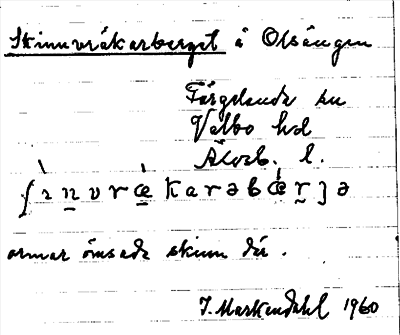 Skinnvråkarberget å Olsängen
Färgelanda sn
Valbo hd
Älvsb. l.
ʃɪ̀n̲vrǽ̲karəbǽr̲jə
ormar ömsade skinn där.
J. Markendahl 1960